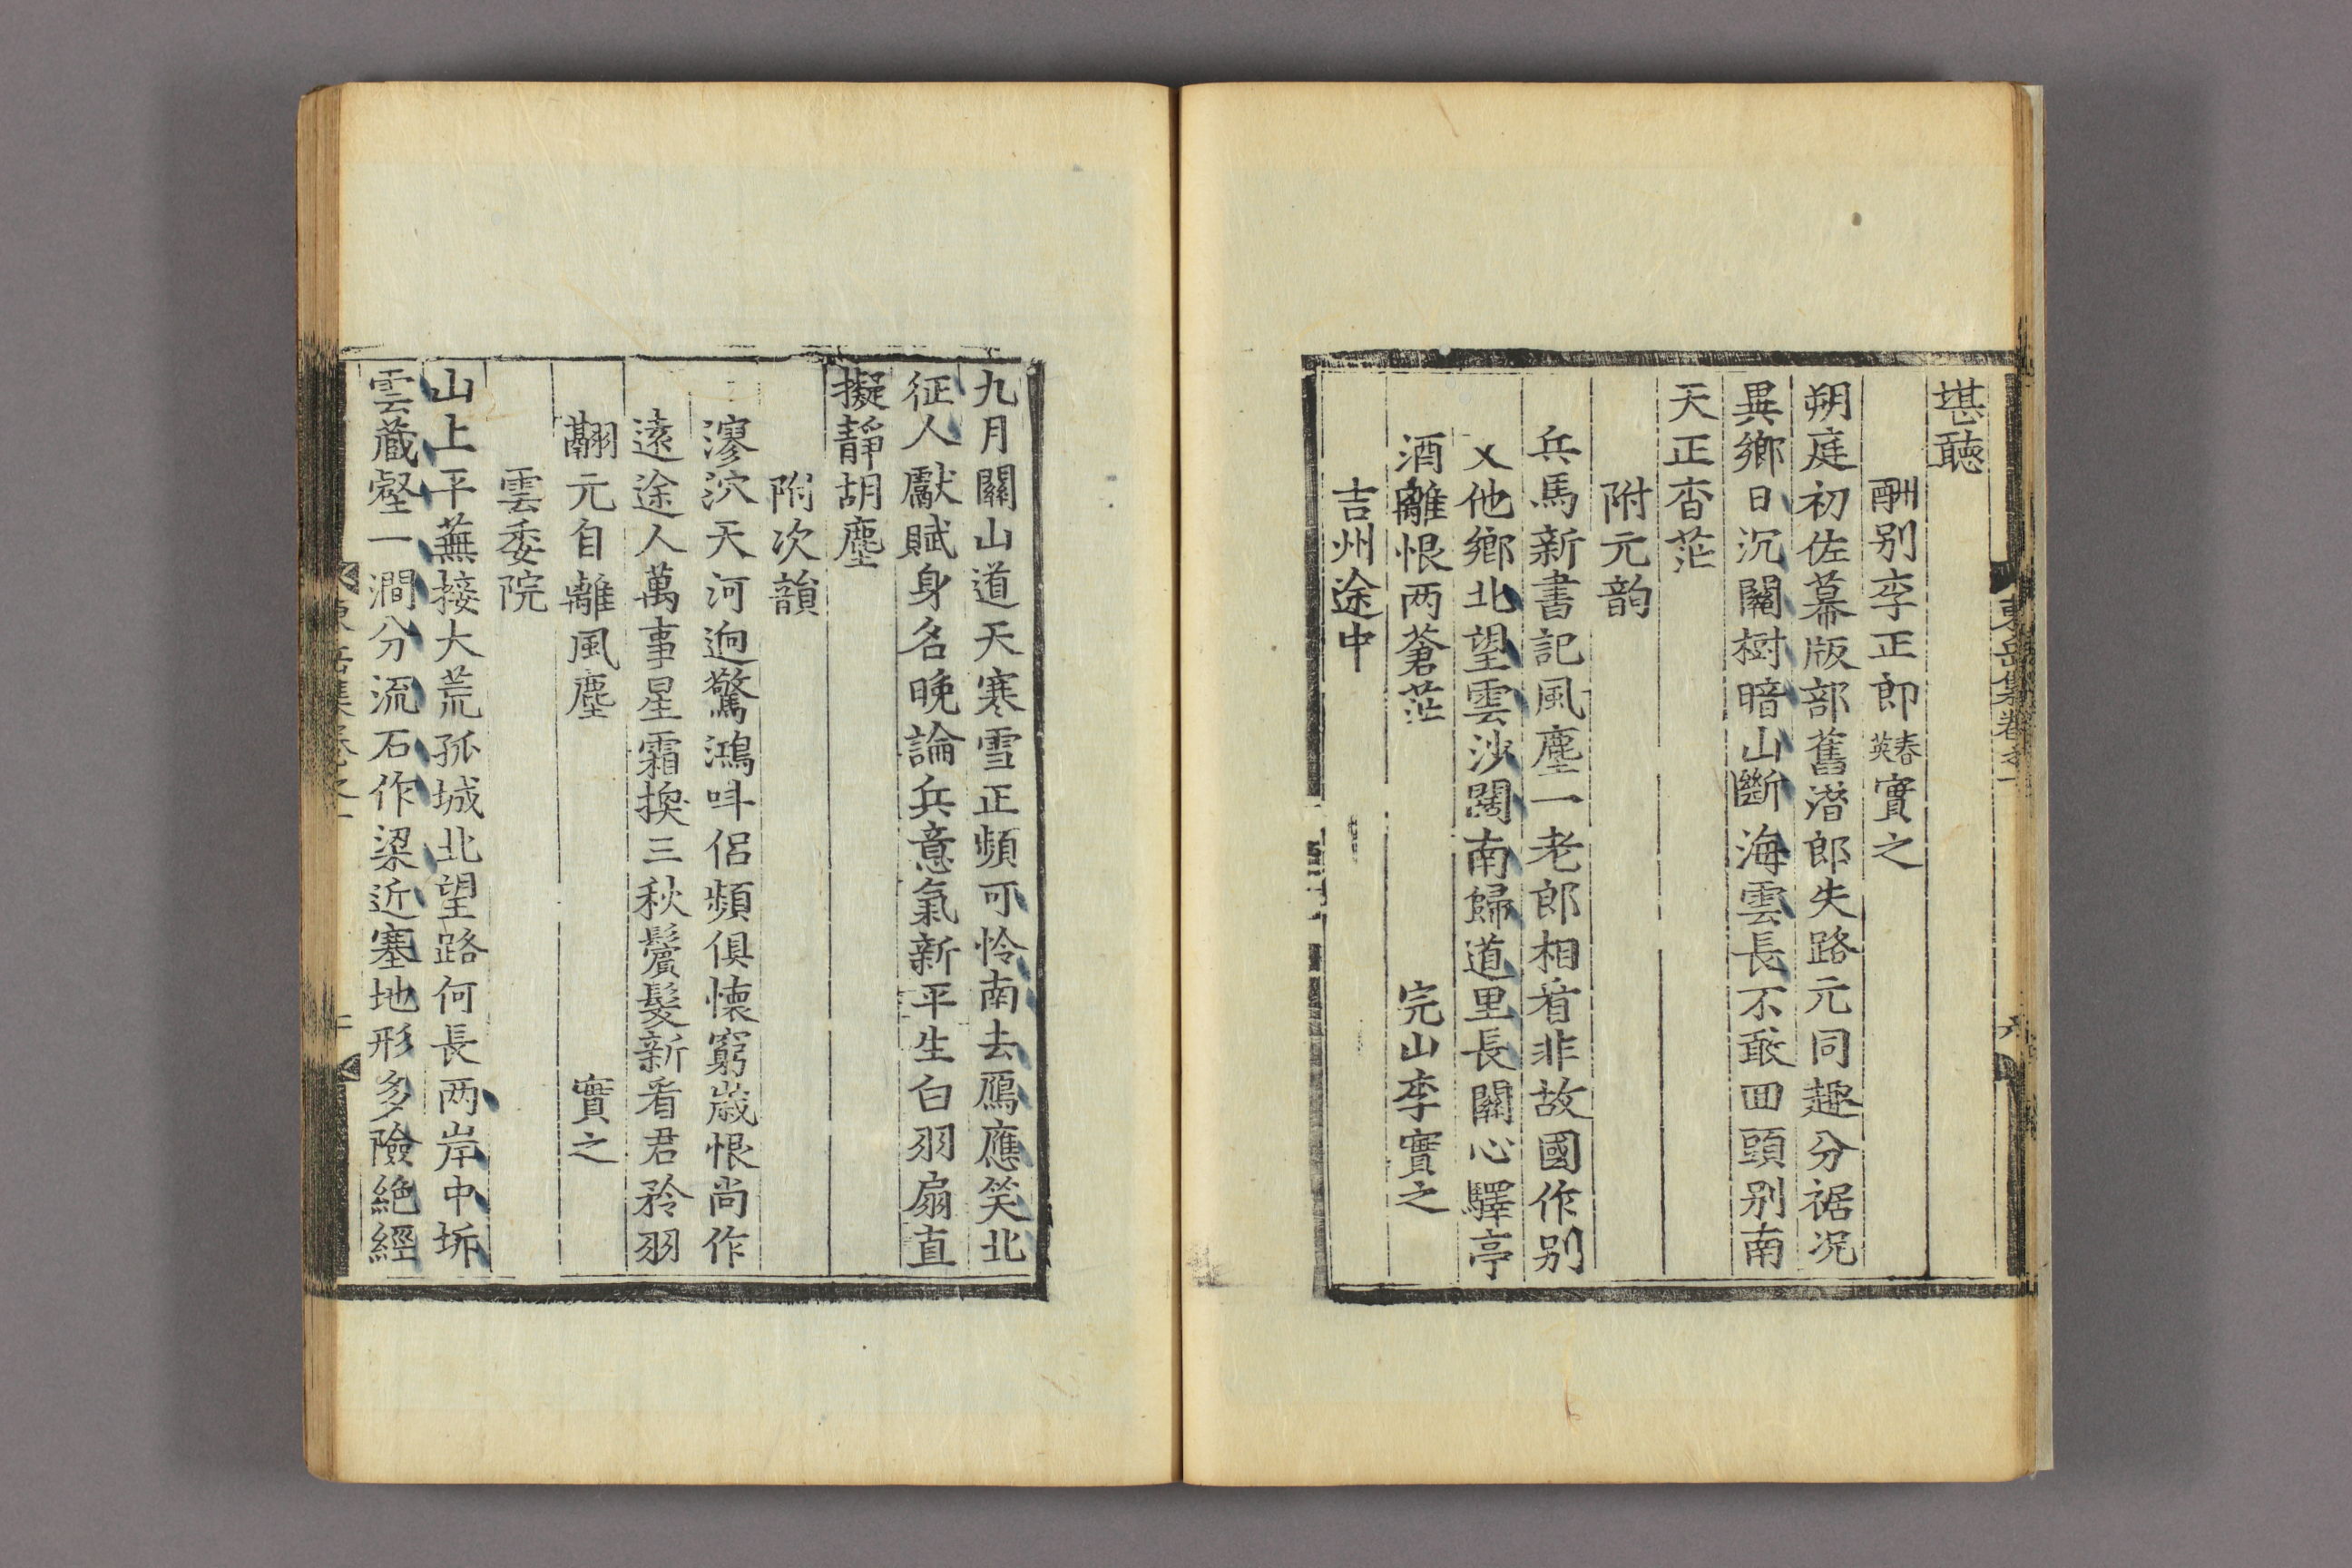 堪聽
酬别李正郎英春實之
朔庭初佐幕版部舊潜郎失路元同趣分裾况
異鄉日沉關樹暗山斷海雲長不敢回頭别南
天正杳茫
附元韵
兵馬新書記風塵一老郎相看非故國作别
又他鄉北望雲沙闊南歸道里長關心驛亭
酒離恨两蒼茫
完山李實之
吉州途中
九月關山道天寒雪正頻可怜南去鴈應笑北
征人獻賦身名晚論兵意氣新平生白羽扇直
擬靜胡塵
附次韻
漻泬天河逈驚鴻呌侣頻俱懐窮歳恨尚作
遠途人萬事星霜換三秋鬢髮新看君矜羽
翮元自離風塵
實之
雲委院
山上平蕪接大荒孤城北望路何長两岸中坼
雲藏壑一澗分流石作梁近塞地形多險絶經